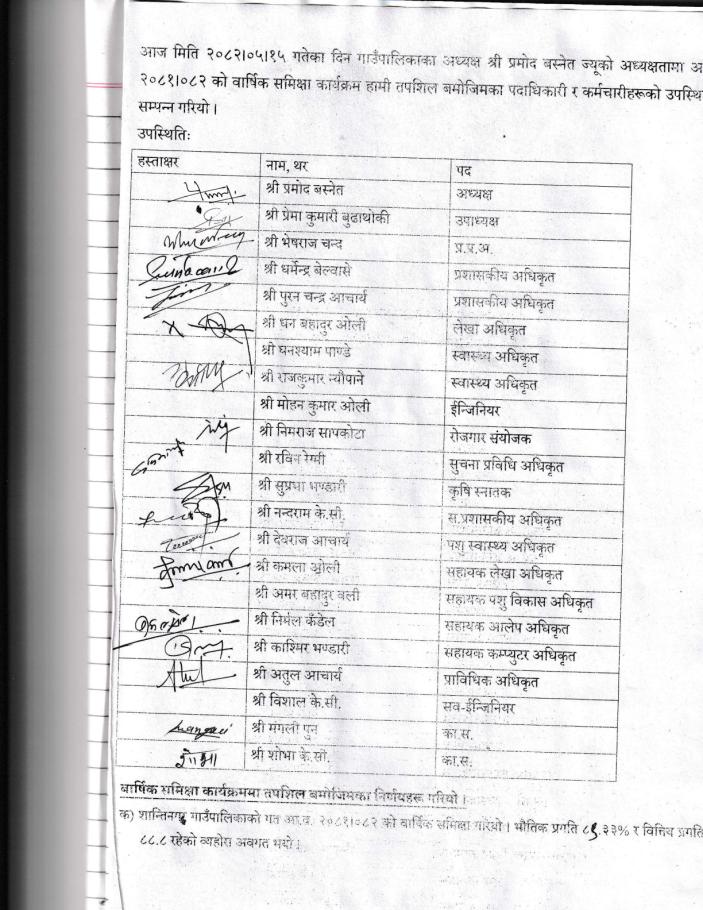 आज मिति २०८२।०५।१५ गतेका दिन गाउँपालिकाका अध्यक्ष श्री प्रमोद बस्नेत ज्यूको अध्यक्षतामा
२०८१।०८२ को वार्षिक समिक्षा कार्यक्रम हामी तपशिल बमोजिमका पदाधिकारी र कर्मचारीहरूको
सम्पन्न गरियो ।
उपस्थितिः
हस्ताक्षर नाम, थर पद
श्री प्रमोद बस्नेत अध्यक्ष
श्री प्रेमा कुमारी बुढाथोकी उपाध्यक्ष
श्री भेषराज चन्द प्र.प्र.अ.
श्री धर्मेन्द्र बेल्वासे प्रशासकीय अधिकृत
श्री पुरन चन्द्र आचार्य प्रशासकीय अधिकृत
श्री धन बहादुर ओली लेखा अधिकृत
श्री घनश्याम पाण्डे स्वास्थ्य अधिकृत
श्री राजकुमार न्यौपाने स्वास्थ्य अधिकृत
श्री मोहन कुमार ओली ईन्जिनियर
श्री निमराज सापकोटा रोजगार संयोजक
श्री रविन रेग्मी सुचना प्रविधि अधिकृत
श्री सुप्रभा भण्डारी कृषि स्नातक
श्री नन्दराम के.सी. स.प्रशासकीय अधिकृत
श्री देवराज आचार्य पशु स्वास्थ्य अधिकृत
श्री कमला ओली सहायक लेखा अधिकृत
श्री अमर बहादुर वली सहायक पशु विकास अधिकृत
श्री निर्मल कँडेल सहायक आलेप अधिकृत
श्री काश्मिर भण्डारी सहायक कम्प्युटर अधिकृत
श्री अतुल आचार्य प्राविधिक अधिकृत
श्री विशाल के.सी. सव-ईन्जिनियर
श्री मंगली पुन का.स.
शोभा श्री शोभा के.सी. का.स.
वार्षिक समिक्षा कार्यक्रममा तपशिल बमोजिमका निर्णयहरू गरियो ।
क) शान्तिनगर गाउँपालिकाको गत आ.व. २०८१।०८२ को वार्षिक समिक्षा गरियो । भौतिक प्रगति र वित्तिय प्रगति
८८.८ रहेको व्यहोरा अवगत भयो ।